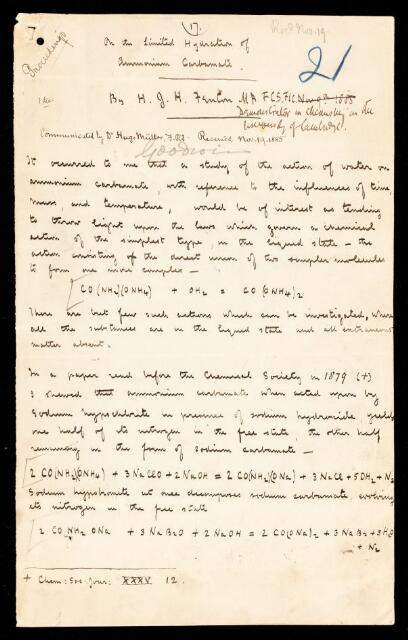 (17.
Rec.d Nov. 19.
Proceedings
On the Limited Hydration of
Ammonium Carbamate.
21
By H. J. H. Fenton M.A. F.C.S, F.I.C. 1885
Demonstrator in Chemistry in the
University of Cambridge.
Communicated by Dr Hugo Müller, F.R.S. Received Nov. 19. 1885
It occurred to me that a study of the action of water on
ammonium carbamate, with reference to the influences of time
mass, and temperature, would be of interest as tending
to throw light upon the laws which govern a chemical
action of the simplest type, in the liquid state – the
action consisting of the direct union of two simpler molecules
to form one more complex –
CO(NH2)(ONH4) + OH2 = CO(ONH4)2
There are but few such actions which can be investigated, where
all the substances are in the liquid state and all extraneous
matter absent.
In a paper read before the Chemical Society in 1879 (+)
I shewed that ammonium carbamate when acted upon by
Sodium hypochlorite in presence of sodium hydroxide, yields
one half of its nitrogen in the free state, the other half
remaining in the form of sodium carbamate –
2 CO(NH2)(ONH4) + 3 NaClO + 2 NaOH = 2 CO(NH2)(ONa) + 3 NaCl + 5OH2 + N2
Sodium hypobromite at once decomposes sodium carbamate, evolving
its nitrogen in the free state
2 CO NH2 ONa + 3 NaBrO + 2 NaOH = 2 CO(ONa)2 + 3 NaBr + 3H2O
+ N2
+ Chem: Soc: Jour: XXXV 12.